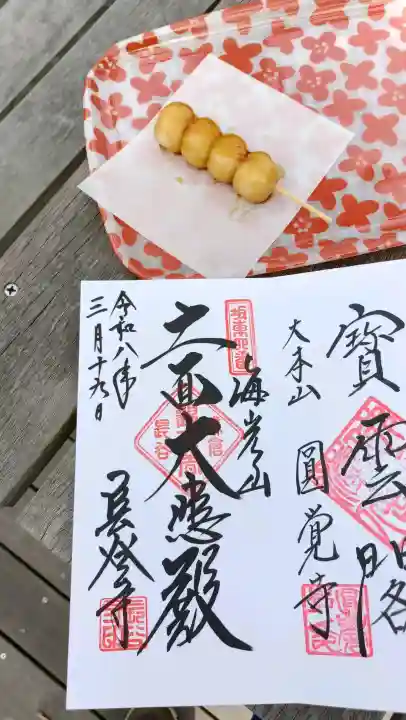 寶雲閣
大本山
圓覚寺
坂東四番
海光山
十一面大悲殿
長谷寺
令和八年
三月十九日